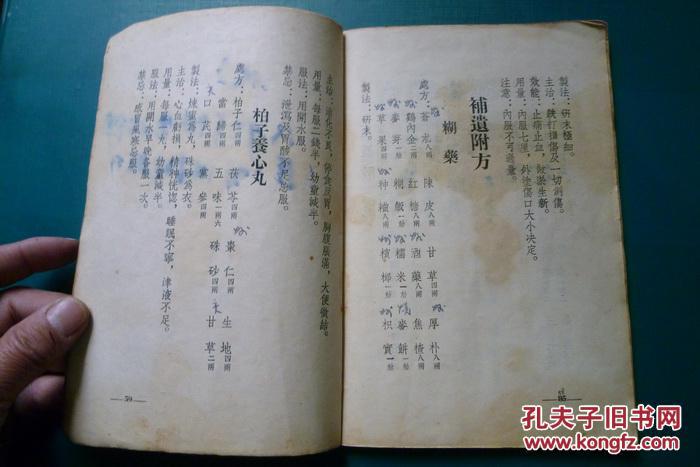 製法：研末極細。
主治：跌打損傷及一切割傷。
效能：止痛止血，散瘀生新。
用量：內服七厘，外塗傷口大小決定。
注意：內服不可過量。
補遺附方
糊藥
處方：蒼朮八兩 陳皮八兩 甘草四兩 厚朴八兩
鷄內金三兩 紅糖八兩 酒藥八兩 焦楂八兩
麥芽一觔 糯米一觔 麥餅一觔
草果四兩 神 檳榔一觔 枳實一觔
製法：研末。
主治：消化不良，停食反胃，胸腹脹滿，大便徵結。
用量：每服二錢半，幼童減半。
服法：用開水服。
禁忌：泄瀉及胃酸不足忌服。
柏子養心丸
處方：柏子仁四兩 茯苓四兩 棗仁四兩 生地四兩
當歸四兩 五味一兩六 硃砂四兩 甘草二兩
口芪四兩 黨參四兩
製法：煉蜜爲丸，硃砂爲衣。
主治：心血虧損，精神恍惚，睡眠不寧，津液不足。
用量：每服一丸，幼童減半。
服法：用開水早晚各服一次。
禁忌：感冒風寒忌服。
59
孔夫子旧书网
www.kongfz.com